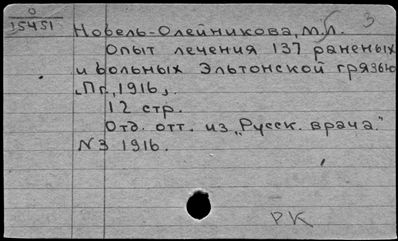 0
15451
Нобель-Олейникова, М.Л. 3
Опыт лечения 137 раненых
и больных Эльтонской грязью
[Пг., 1916].
12 стр.
Отд. отт. из „Русск. врача."
N3 1916.
РК